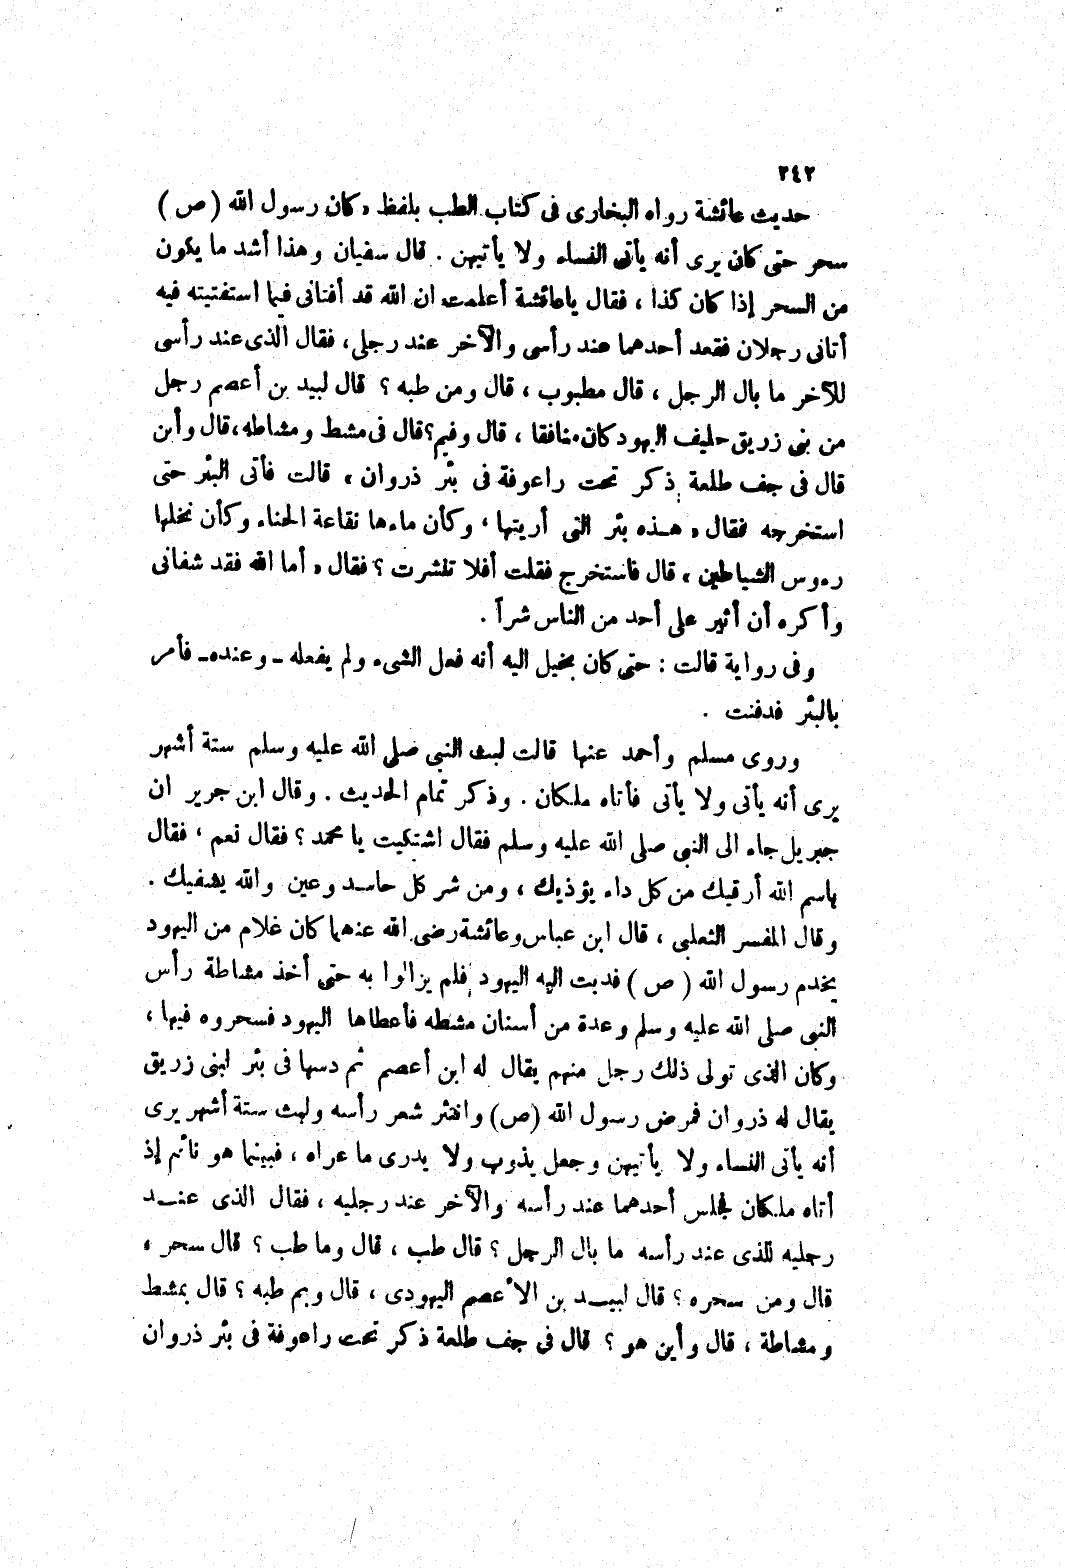 ٢٤٢
حديث عائشة رواه البخارى فى كتاب الطب بلفظ « كان رسول الله (ص)
سحر حتى كان يرى أنه يأتى النساء ولا يأتيهن . قال سفيان وهذا أشد ما يكون
من السحر إذا كان كذا ، فقال ياعائشة أعلمت ان الله قد أفتانى فيما استفتيته فيه
أتانى رجلان فقعد أحدهما عند رأسى والآخر عند رجلى، فقال الذى عند رأسى
للآخر ما بال الرجل ، قال مطبوب ، قال ومن طبه ؟ قال لبيد بن أعصم رجل
من بنى زريق حليف اليهود كان منافقا ، قال وفيم؟ قال فى مشط ومشاطه، قال وأين
قال فى جف طلعة ذكر تحت راعوفة فى بئر ذروان ، قالت فأتى البئر حتى
استخرجه فقال « هـذه بئر التى أريتها ، وكأن ماءها نقاعة الحناء وكأن نخلها
رءوس الشياطين ، قال فاستخرج فقلت أفلا تنشرت ؟ فقال « أما الله فقد شفانى
وأكره أن أثير على أحد من الناس شراً .
وفى رواية قالت : حتى كان يخيل اليه أنه فعل الشىء ولم يفعله ـ وعنده ـ فأمر
بالبئر فدفنت .
وروى مسلم وأحمد عنها قالت لبث النبى صلى الله عليه وسلم ستة أشهر
يرى أنه يأتى ولا يأتى فأتاه ملكان . وذكر تمام الحديث . وقال ابن جرير ان
جبريل جاء الى النبى صلى الله عليه وسلم فقال اشتكيت يا محمد ؟ فقال نعم ، فقال
باسم الله أرقيك من كل داء يؤذيك ، ومن شر كل حاسـد وعين والله يشفيك .
وقال المفسر الثعلبى ، قال ابن عباس وعائشة رضى الله عنهما كان غلام من اليهود
يخدم رسول الله ( ص ) فدبت اليه اليهود فلم يزالوا به حتى أخذ مشاطة رأس
النبى صلى الله عليه وسلم وعدة من أسنان مشطه فأعطاها اليهود فسحروه فيها ،
وكان الذى تولى ذلك رجل منهم يقال له ابن أعصم ثم دسها فى بئر لبنى زريق
يقال له ذروان فمرض رسول الله (ص) وانتثر شعر رأسه ولبث ستة أشهر يرى
أنه يأتى النساء ولا يأتيهن وجعل يذوب ولا يدرى ما عراه ، فبينما هو نائم إذ
أتاه ملكان فجلس أحدهما عند رأسه والآخر عند رجليه ، فقال الذى عنــد
رجليه للذى عند رأسه ما بال الرجل ؟ قال طب ، قال وما طب ؟ قال سحر ،
قال ومن سحره ؟ قال لبيــد بن الأعصم اليهودى ، قال وبم طبه ؟ قال بمشط
ومشاطة ، قال وأين هو ؟ قال فى جف طلعة ذكر تحت راعوفة فى بئر ذروان